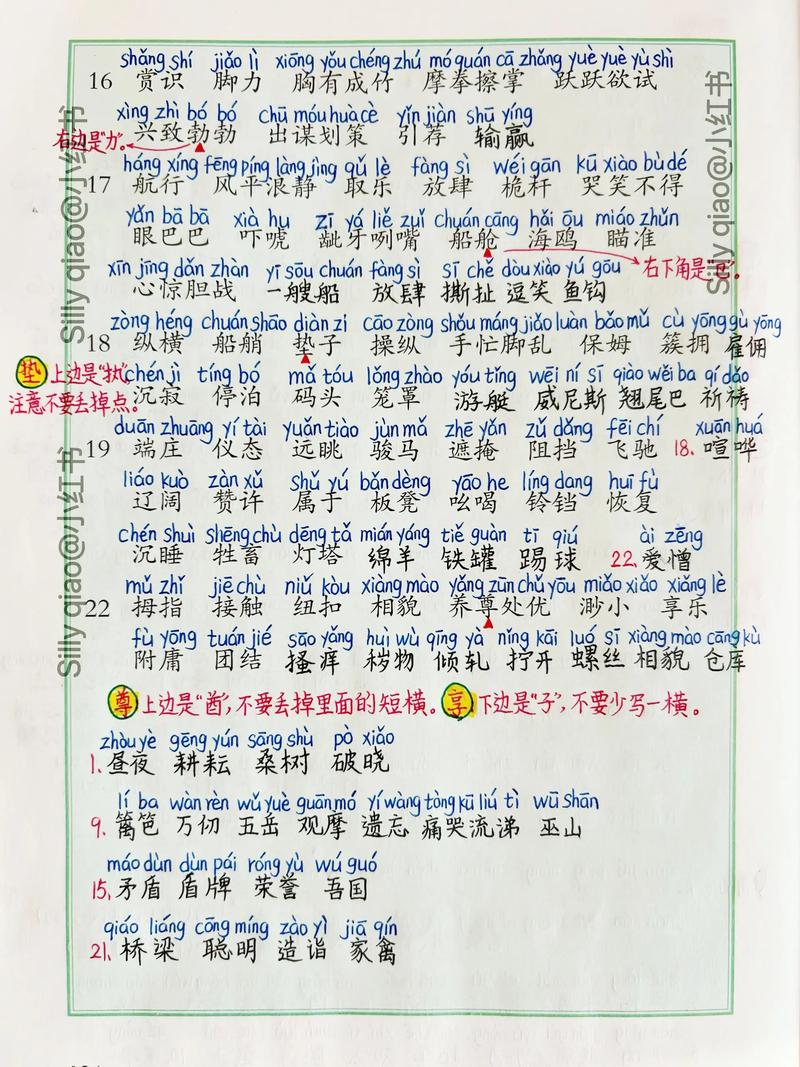 shǎng shí jiǎo lì xiōng yǒu chéng zhú mó quán cā zhǎng yuè yuè yù shì
16 赏识 脚力 胸有成竹 摩拳擦掌 跃跃欲试
xìng zhì bó bó chū móu huà cè yǐn jiàn shū yíng
兴致勃勃 出谋划策 引荐 输赢
右边是"力"。
háng xíng fēng píng làng jìng qǔ lè fàng sì wéi gān kū xiào bù dé
17 航行 风平浪静 取乐 放肆 桅杆 哭笑不得
yǎn bā bā xià hu zī yá liě zuǐ chuán cāng hǎi ōu miáo zhǔn
眼巴巴 吓唬 龇牙咧嘴 船舱 海鸥 瞄准
xīn jīng dǎn zhàn yī sōu chuán fàng sì sī chě dòu xiào yú gōu
右下角是"㔾"。
心惊胆战 一艘船 放肆 撕扯 逗笑 鱼钩
zòng héng chuán shāo diàn zi cāo zòng shǒu máng jiǎo luàn bǎo mǔ cù yōng gù yōng
18 纵横 船艄 垫子 操纵 手忙脚乱 保姆 簇拥 雇佣
垫 上边是"执",
注意不要丢掉点。
chén jì tíng bó mǎ tóu lǒng zhào yóu tǐng wēi ní sī qiào wěi ba qí dǎo
沉寂 停泊 码头 笼罩 游艇 威尼斯 翘尾巴 祈祷
duān zhuāng yí tài yuǎn tiào jùn mǎ zhē yǎn zǔ dǎng fēi chí xuān huá
19 端庄 仪态 远眺 骏马 遮掩 阻挡 飞驰 18. 喧哗
liáo kuò zàn xǔ shǔ yú bǎn dèng yāo he líng dang huī fù
辽阔 赞许 属于 板凳 吆喝 铃铛 恢复
chén shuì shēng chù dēng tǎ mián yáng tiě guàn tī qiú ài zēng
沉睡 牲畜 灯塔 绵羊 铁罐 踢球 22. 爱憎
mǔ zhǐ jiē chù niǔ kòu xiàng mào yǎng zūn chǔ yōu miǎo xiǎo xiǎng lè
22 拇指 接触 纽扣 相貌 养尊处优 渺小 享乐
fù yōng tuán jié sāo yǎng huì wù qīng yà nǐng kāi luó sī xiàng mào cāng kù
附庸 团结 搔痒 秽物 倾轧 拧开 螺丝 相貌 仓库
尊 上边是"酋",不要丢掉里面的短横。 享 下边是"子",不要少写一横。
zhòu yè gēng yún sāng shù pò xiǎo
1. 昼夜 耕耘 桑树 破晓
lí ba wàn rèn wǔ yuè guān mó yí wàng tòng kū liú tì wū shān
9. 篱笆 万仞 五岳 观摩 遗忘 痛哭流涕 巫山
máo dùn dùn pái róng yù wú guó
15. 矛盾 盾牌 荣誉 吾国
qiáo liáng cōng míng zào yì jiā qín
21. 桥梁 聪明 造诣 家禽
Silly qiao@小红书
Silly qiao@小红书
Silly qiao@小红书